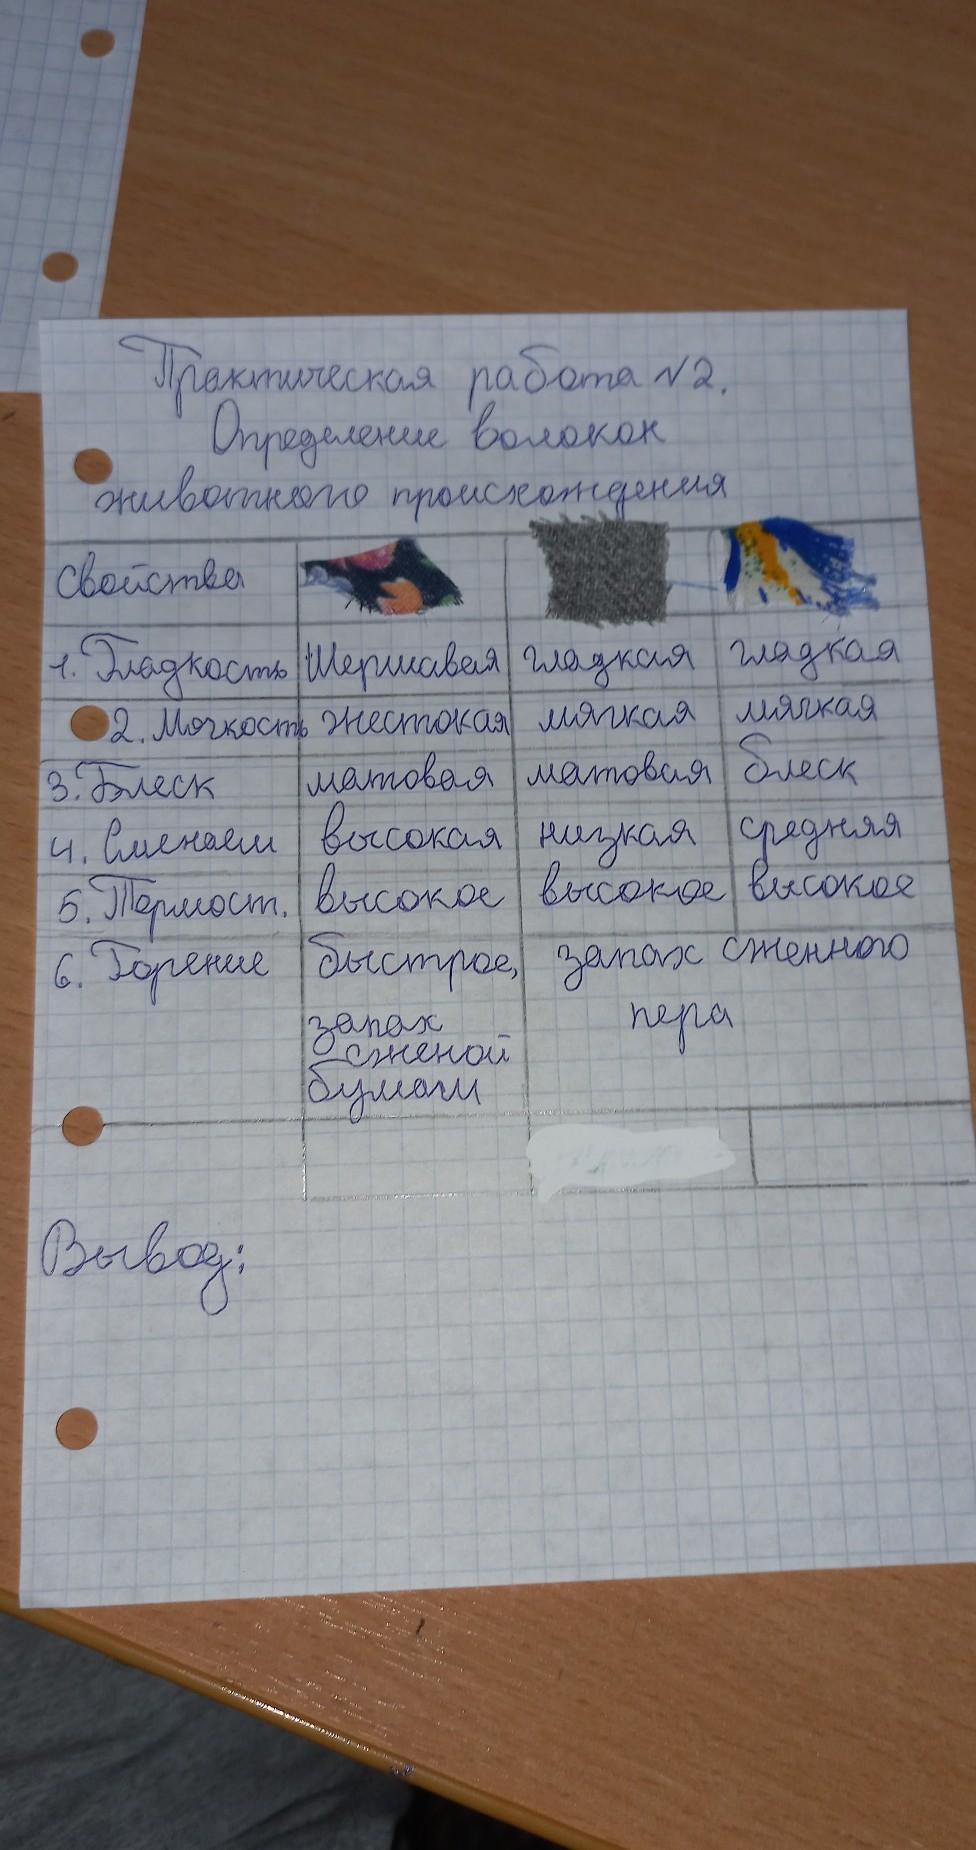 Практическая работа №2.
Определение волокон
животного происхождения
Свойства
1. Гладкость Шершавая гладкая гладкая
2. Мягкость жестокая мягкая мягкая
3. Блеск матовая матовая блеск
4. Сминаем высокая низкая средняя
5. Термост. высокое высокое высокое
6. Горение быстрое, запах сженного
пера
запах
сженой
бумаги
Вывод: